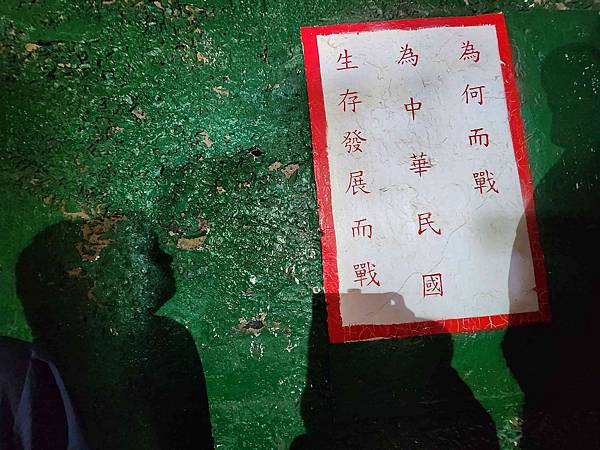 為何而戰
為中華民國
生存發展而戰